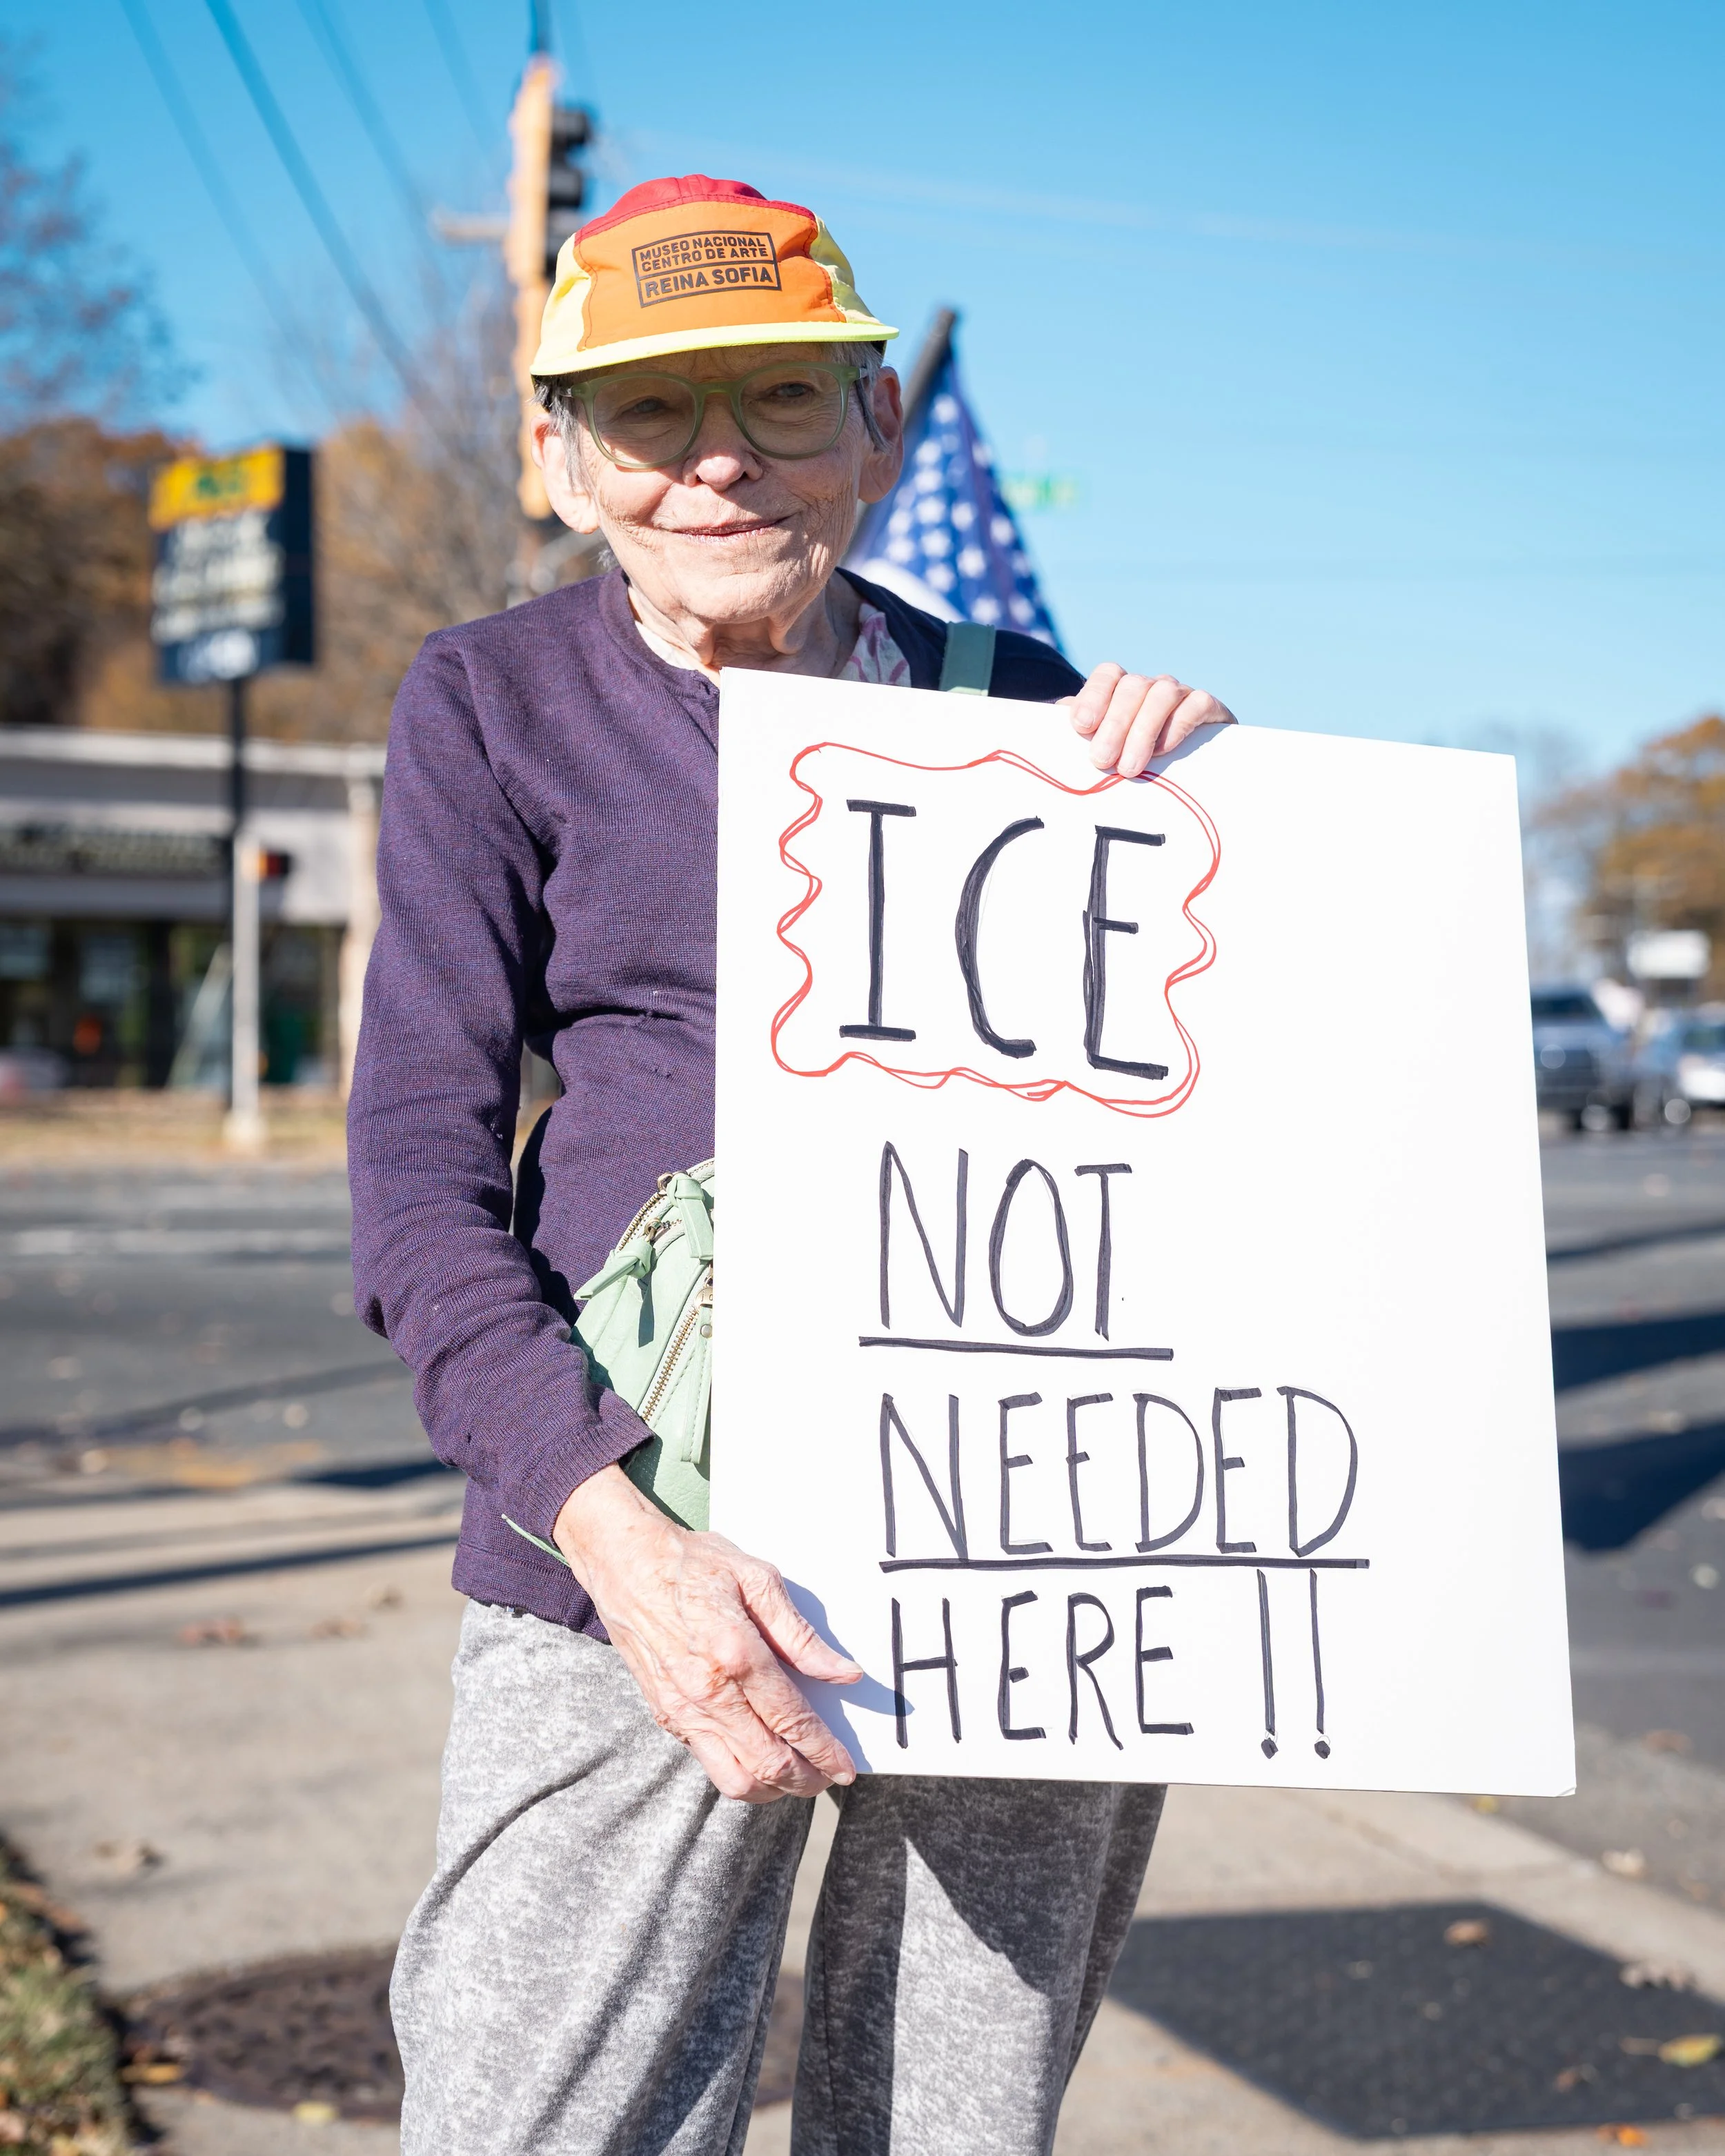 MUSEO NACIONAL
CENTRO DE ARTE
REINA SOFIA
ICE
NOT
NEEDED
HERE!!